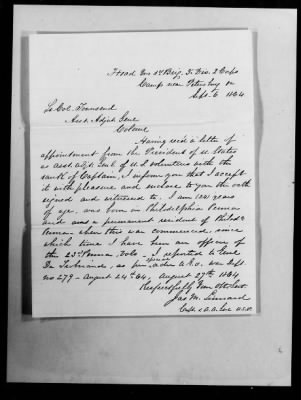 Head Qrs 1st Brig. 3d Div. 2 Corps
Camp near Petersburg Va
Sept. 6 1864
Lt Col. Townsend
Asst. Adjt Genl
Colonel
Having rec'd a letter of
appointment from the President of U. States
as asst. adjt. Genl. of U. S. Volunteers with the
rank of Captain, I inform you that I accept
it with pleasure and enclose to you the oath
signed and witnessed to. I am years
of age, was born in Philadelphia Penna
and a permanent resident of Philada
Penna when this war commenced, since
which time I have been an officer of
the 23d Penna. Vols. I reported to Genl
De Trobriand, as per order A.G.O. War Dept.
no 279 - August 24th 64, August 27th 1864.
Respectfully Your Obt. Servt
Jas. M. Linnard
Capt. & A.A. Genl U.S.V.